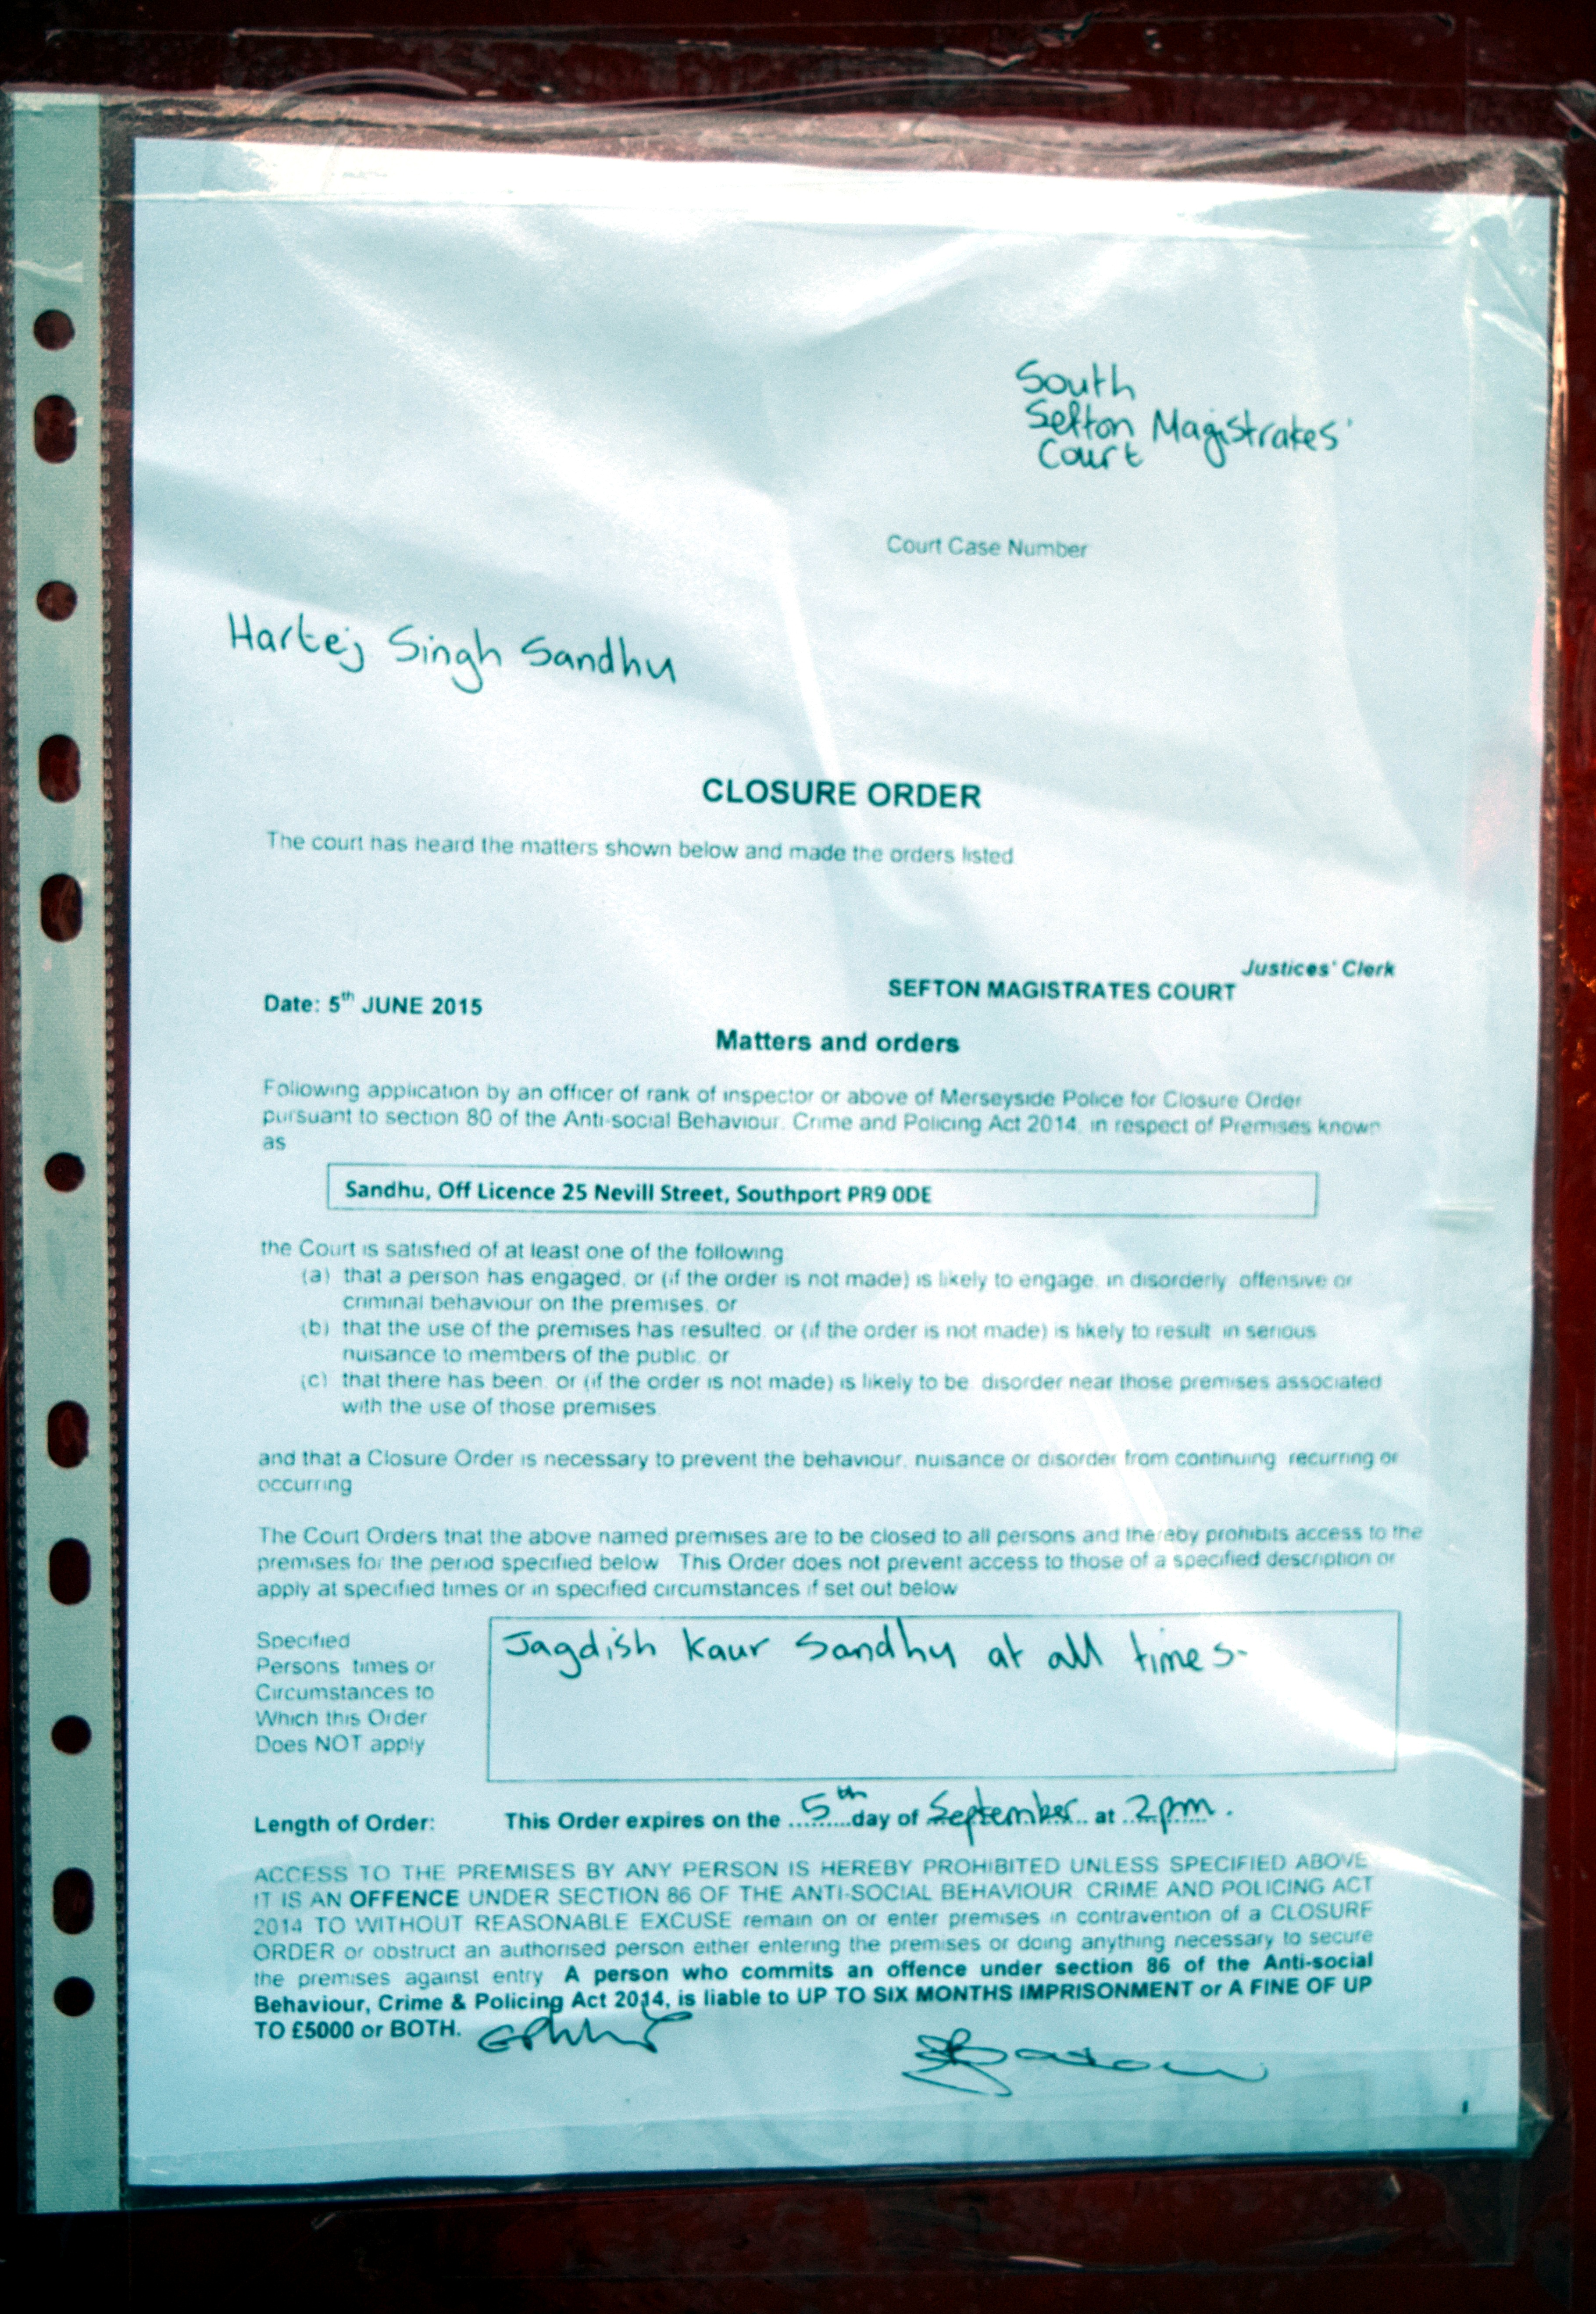 South
Sefton Magistrates'
Court
Court Case Number
Hartej Singh Sandhu
CLOSURE ORDER
The court has heard the matters shown below and made the orders listed
Justices' Clerk
SEFTON MAGISTRATES COURT
Date: 5th JUNE 2015
Matters and orders
Following application by an officer of rank of inspector or above of Merseyside Police for Closure Order
pursuant to section 80 of the Anti-social Behaviour, Crime and Policing Act 2014, in respect of Premises known
as
Sandhu, Off Licence 25 Nevill Street, Southport PR9 0DE
the Court is satisfied of at least one of the following
(a) that a person has engaged, or (if the order is not made) is likely to engage, in disorderly offensive or
criminal behaviour on the premises, or
(b) that the use of the premises has resulted, or (if the order is not made) is likely to result in serious
nuisance to members of the public, or
(c) that there has been, or (if the order is not made) is likely to be, disorder near those premises associated
with the use of those premises.
and that a Closure Order is necessary to prevent the behaviour, nuisance or disorder from continuing recurring or
occurring
The Court Orders that the above named premises are to be closed to all persons and thereby prohibits access to the
premises for the period specified below This Order does not prevent access to those of a specified description or
apply at specified times or in specified circumstances if set out below
Specified
Persons times or
Circumstances to
Which this Order
Does NOT apply
Jagdish Kaur Sandhu at all times-
Length of Order: This Order expires on the 5th day of September at 2pm.
ACCESS TO THE PREMISES BY ANY PERSON IS HEREBY PROHIBITED UNLESS SPECIFIED ABOVE
IT IS AN OFFENCE UNDER SECTION 86 OF THE ANTI-SOCIAL BEHAVIOUR CRIME AND POLICING ACT
2014 TO WITHOUT REASONABLE EXCUSE remain on or enter premises in contravention of a CLOSURE
ORDER or obstruct an authorised person either entering the premises or doing anything necessary to secure
the premises against entry A person who commits an offence under section 86 of the Anti-social
Behaviour, Crime & Policing Act 2014, is liable to UP TO SIX MONTHS IMPRISONMENT or A FINE OF UP
TO £5000 or BOTH.